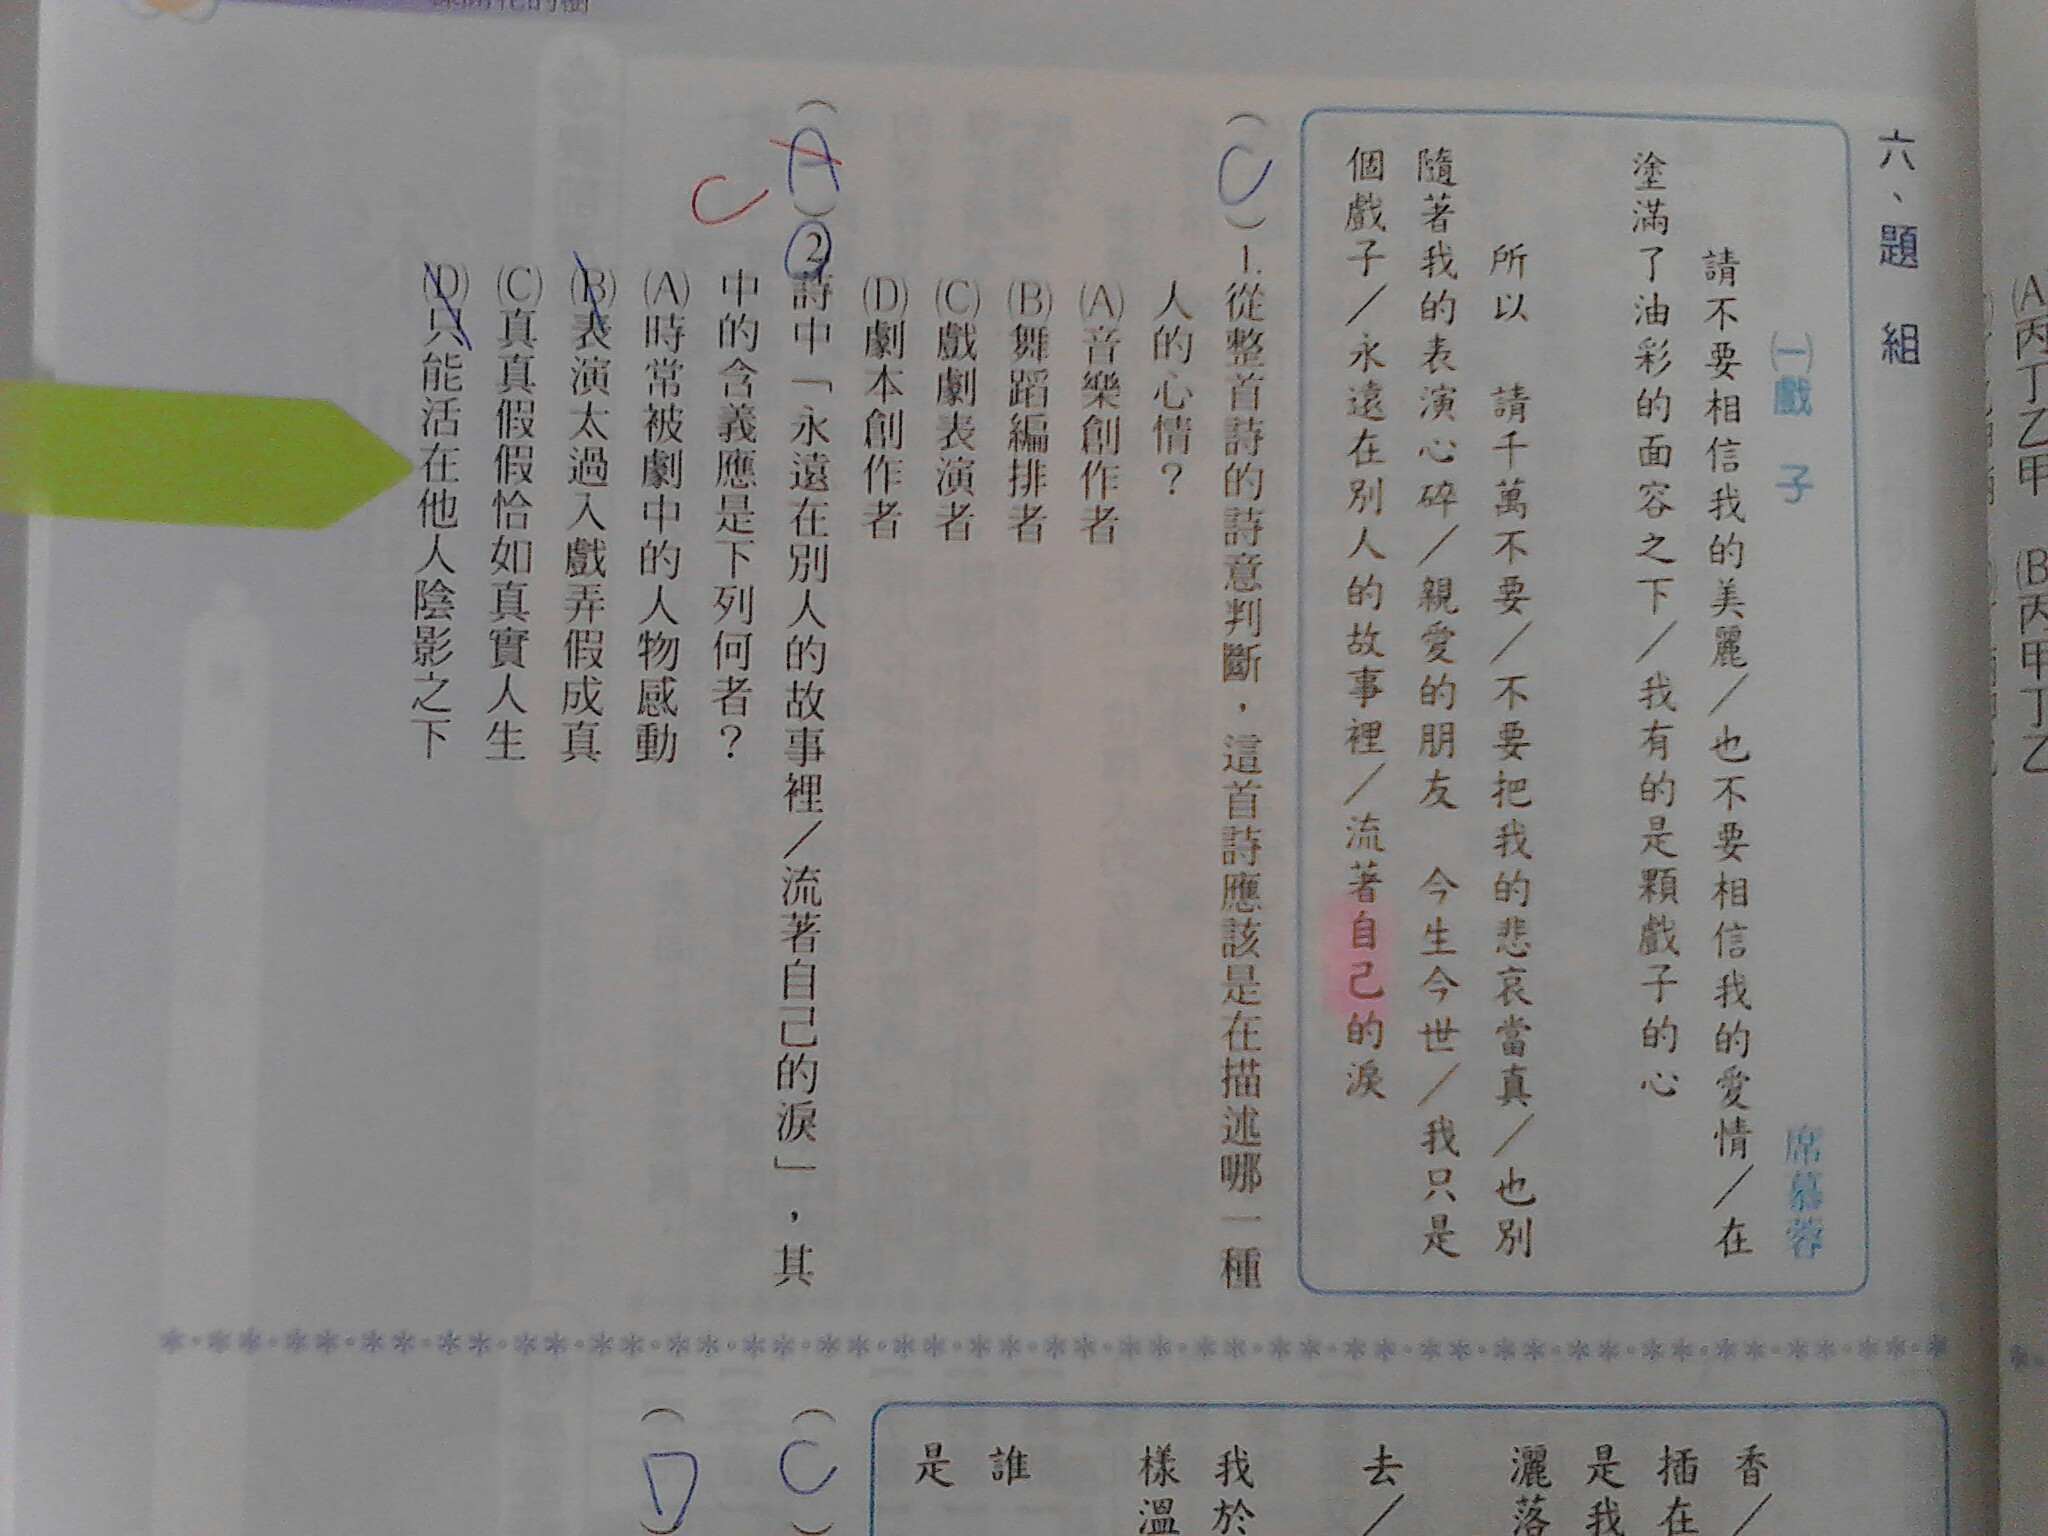 六、題組
㈠戲子 席慕蓉
請不要相信我的美麗／也不要相信我的愛情／在
塗滿了油彩的面容之下／我有的是顆戲子的心
所以 請千萬不要／不要把我的悲哀當真／也別
隨著我的表演心碎／親愛的朋友 今生今世／我只是
個戲子／永遠在別人的故事裡／流著自己的淚
（C）1.從整首詩的詩意判斷，這首詩應該是在描述哪一種
人的心情？
(A)音樂創作者
(B)舞蹈編排者
(C)戲劇表演者
(D)劇本創作者
（A）2.詩中「永遠在別人的故事裡／流著自己的淚」，其
C
中的含義應是下列何者？
(A)時常被劇中的人物感動
(B)表演太過入戲弄假成真
(C)真真假假恰如真實人生
(D)只能活在他人陰影之下
香／
插在
是我
灑落
去／
我於
樣溫
誰
是
（C）
（D）
(A)丙丁乙甲 (B)丙甲丁乙